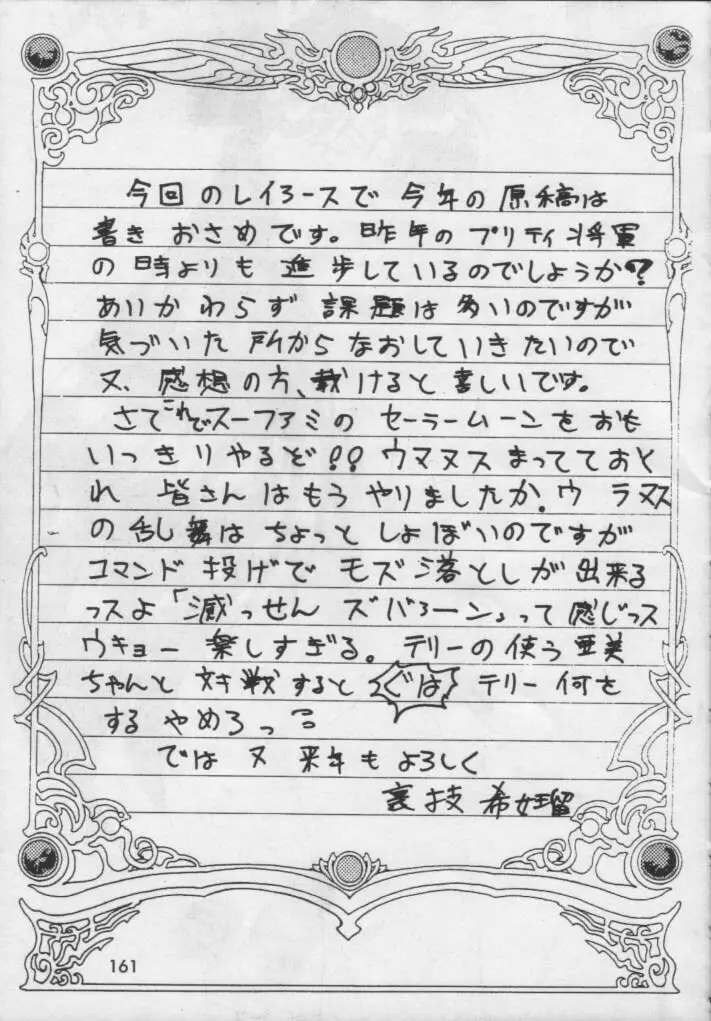 今回のレイろースで今年の原稿は
書きおさめです。昨年のプリティ将軍
の時よりも進歩しているのでしょうか?
あいかわらず課題は多いのですが
気づいた所からなおしていきたいので
又、感想の方、裁けると喜しいです。
さてこれでスーファミのセーラームーンをおも
いっきりやるぞ!!ウマヌスまってておく
れ 皆さんはもうやりましたか。ウラヌス
の乱舞はちょっとしょぼいのですが
コマンド投げでモズ落としが出来る
っスよ「滅っせんズバろーン」って感じっス
ウキョー楽しすぎる。テリーの使う亜美
ちゃんと対戦すると ぐは テリー何を
するやめろっ
では又来年もよろしく
裏技
161